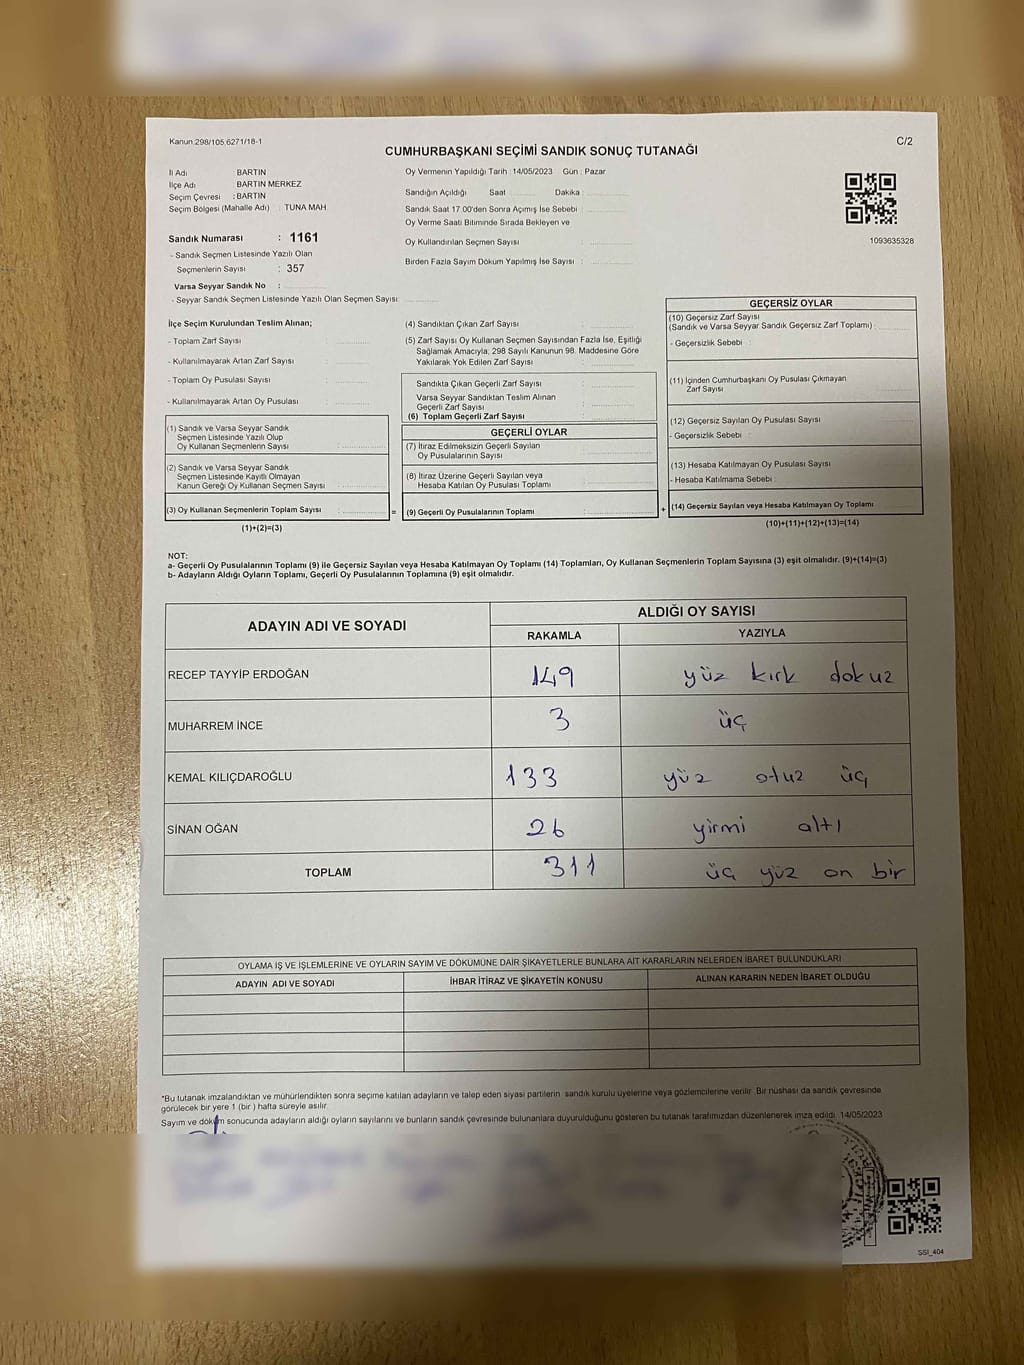 Kanun 298/105,6271/18-1
C/2
CUMHURBAŞKANI SEÇİMİ SANDIK SONUÇ TUTANAĞI
İl Adı BARTIN
İlçe Adı BARTIN MERKEZ
Seçim Çevresi : BARTIN
Seçim Bölgesi (Mahalle Adı) : TUNA MAH
Sandık Numarası : 1161
- Sandık Seçmen Listesinde Yazılı Olan
Seçmenlerin Sayısı : 357
Varsa Seyyar Sandık No :
- Seyyar Sandık Seçmen Listesinde Yazılı Olan Seçmen Sayısı:
Oy Vermenin Yapıldığı Tarih 14/05/2023 Gün : Pazar
Sandığın Açıldığı Saat Dakika :
Sandık Saat 17.00'den Sonra Açımış İse Sebebi :
Oy Verme Saati Bitiminde Sırada Bekleyen ve
Oy Kullandırılan Seçmen Sayısı :
Birden Fazla Sayım Döküm Yapılmış İse Sayısı :
1093635328
İlçe Seçim Kurulundan Teslim Alınan;
- Toplam Zarf Sayısı :
- Kullanılmayarak Artan Zarf Sayısı :
- Toplam Oy Pusulası Sayısı :
- Kullanılmayarak Artan Oy Pusulası :
(1) Sandık ve Varsa Seyyar Sandık
Seçmen Listesinde Yazılı Olup
Oy Kullanan Seçmenlerin Sayısı :
(2) Sandık ve Varsa Seyyar Sandık
Seçmen Listesinde Kayıtlı Olmayan
Kanun Gereği Oy Kullanan Seçmen Sayısı :
(3) Oy Kullanan Seçmenlerin Toplam Sayısı :
(1)+(2)=(3)
=
(4) Sandıktan Çıkan Zarf Sayısı :
(5) Zarf Sayısı Oy Kullanan Seçmen Sayısından Fazla İse, Eşitliği
Sağlamak Amacıyla; 298 Sayılı Kanunun 98. Maddesine Göre
Yakılarak Yok Edilen Zarf Sayısı :
Sandıkta Çıkan Geçerli Zarf Sayısı :
Varsa Seyyar Sandıktan Teslim Alınan
Geçerli Zarf Sayısı :
(6) Toplam Geçerli Zarf Sayısı :
GEÇERLİ OYLAR
(7) İtiraz Edilmeksizin Geçerli Sayılan
Oy Pusulalarının Sayısı :
(8) İtiraz Üzerine Geçerli Sayılan veya
Hesaba Katılan Oy Pusulası Toplamı :
(9) Geçerli Oy Pusulalarının Toplamı :
+
GEÇERSİZ OYLAR
(10) Geçersiz Zarf Sayısı
(Sandık ve Varsa Seyyar Sandık Geçersiz Zarf Toplamı) :
- Geçersizlik Sebebi :
(11) İçinden Cumhurbaşkanı Oy Pusulası Çıkmayan
Zarf Sayısı :
(12) Geçersiz Sayılan Oy Pusulası Sayısı :
- Geçersizlik Sebebi :
(13) Hesaba Katılmayan Oy Pusulası Sayısı :
- Hesaba Katılmama Sebebi :
(14) Geçersiz Sayılan veya Hesaba Katılmayan Oy Toplamı :
(10)+(11)+(12)+(13)=(14)
NOT:
a- Geçerli Oy Pusulalarının Toplamı (9) ile Geçersiz Sayılan veya Hesaba Katılmayan Oy Toplamı (14) Toplamları, Oy Kullanan Seçmenlerin Toplam Sayısına (3) eşit olmalıdır. (9)+(14)=(3)
b- Adayların Aldığı Oyların Toplamı, Geçerli Oy Pusulalarının Toplamına (9) eşit olmalıdır.
ADAYIN ADI VE SOYADI ALDIĞI OY SAYISI
RAKAMLA YAZIYLA
RECEP TAYYİP ERDOĞAN 149 yüz kırk dokuz
MUHARREM İNCE 3 üç
KEMAL KILIÇDAROĞLU 133 yüz otuz üç
SİNAN OĞAN 26 yirmi altı
TOPLAM 311 üç yüz on bir
OYLAMA İŞ VE İŞLEMLERİNE VE OYLARIN SAYIM VE DÖKÜMÜNE DAİR ŞİKAYETLERLE BUNLARA AİT KARARLARIN NELERDEN İBARET BULUNDUKLARI
ADAYIN ADI VE SOYADI İHBAR İTİRAZ VE ŞİKAYETİN KONUSU ALINAN KARARIN NEDEN İBARET OLDUĞU
*Bu tutanak imzalandıktan ve mühürlendikten sonra seçime katılan adayların ve talep eden siyasi partilerin sandık kurulu üyelerine veya gözlemcilerine verilir. Bir nüshası da sandık çevresinde
görülecek bir yere 1 (bir ) hafta süreyle asılır.
Sayım ve döküm sonucunda adayların aldığı oyların sayılarını ve bunların sandık çevresinde bulunanlara duyurulduğunu gösteren bu tutanak tarafımızdan düzenlenerek imza edildi. 14/05/2023
SSI_404